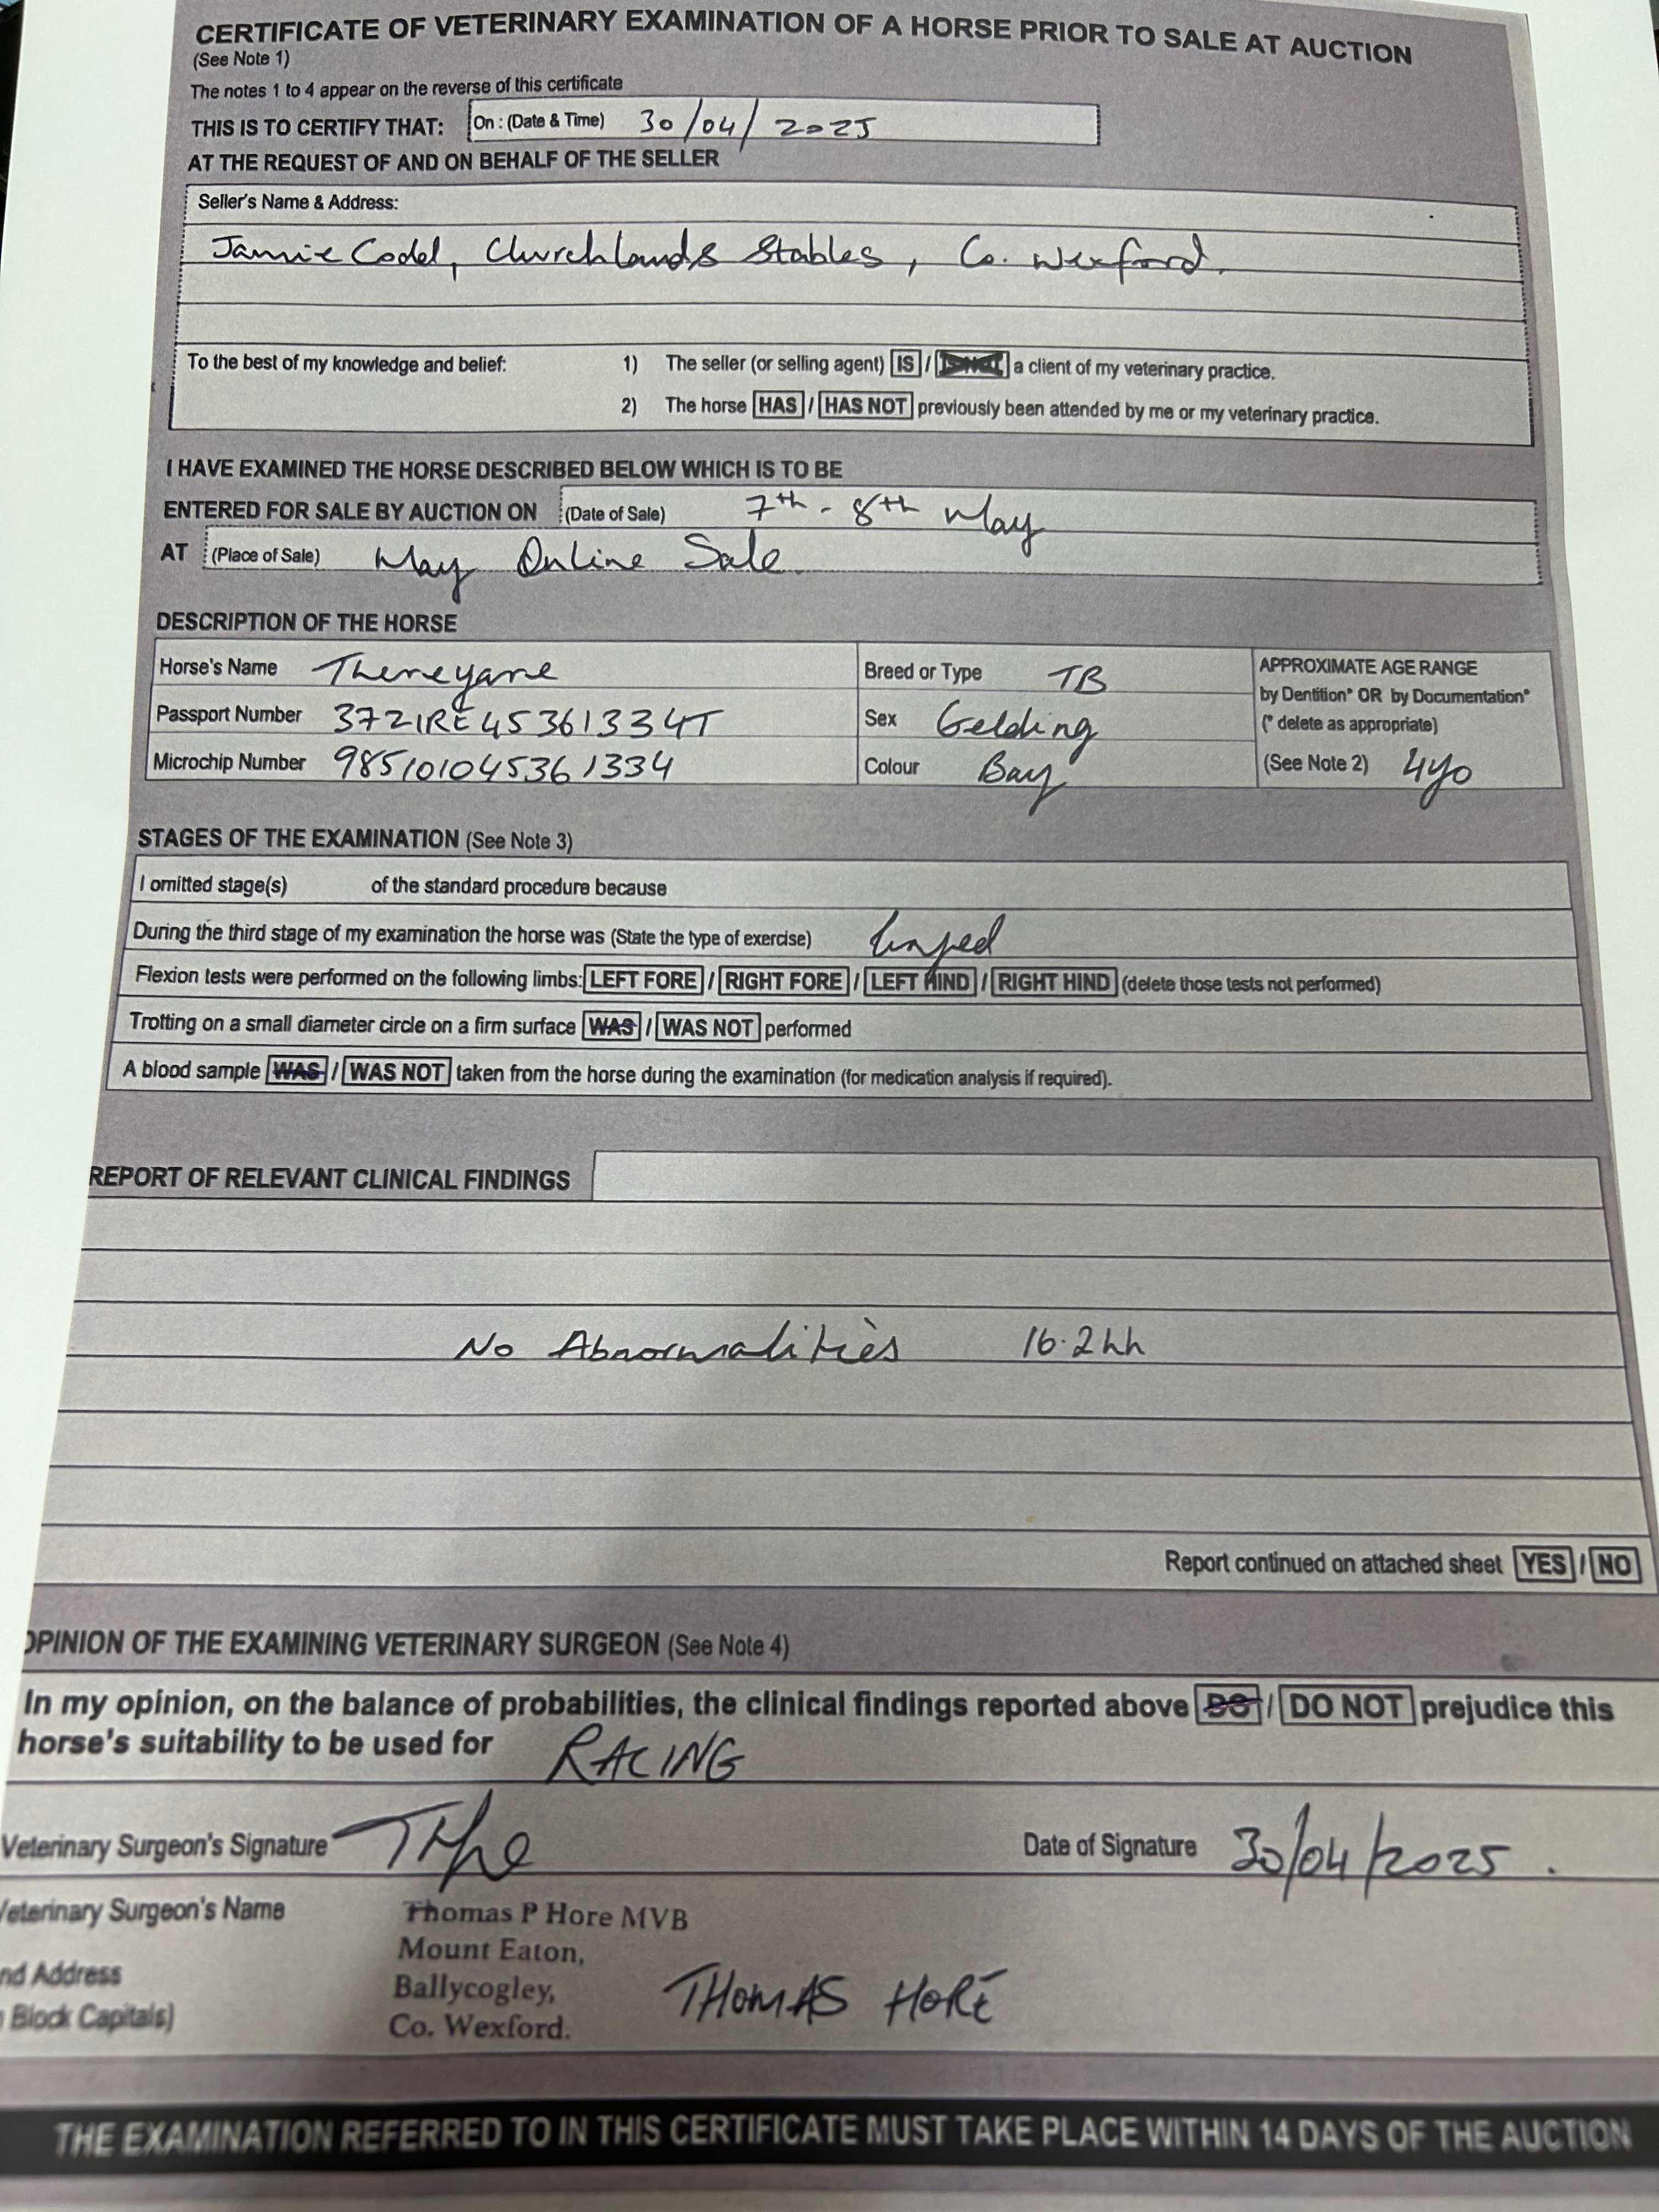 CERTIFICATE OF VETERINARY EXAMINATION OF A HORSE PRIOR TO SALE AT AUCTION
(See Note 1)
The notes 1 to 4 appear on the reverse of this certificate
THIS IS TO CERTIFY THAT: On : (Date & Time) 30/04/2025
AT THE REQUEST OF AND ON BEHALF OF THE SELLER
Seller's Name & Address:
Jamie Codd, Churchlands Stables, Co. Wexford.
To the best of my knowledge and belief: 1) The seller (or selling agent) IS / IS NOT a client of my veterinary practice.
2) The horse HAS / HAS NOT previously been attended by me or my veterinary practice.
I HAVE EXAMINED THE HORSE DESCRIBED BELOW WHICH IS TO BE
ENTERED FOR SALE BY AUCTION ON (Date of Sale) 7th - 8th May
AT (Place of Sale) May Online Sale
DESCRIPTION OF THE HORSE
Horse's Name Theneyane Breed or Type TB APPROXIMATE AGE RANGE
by Dentition* OR by Documentation*
Passport Number 372IRE45361334T Sex Gelding (* delete as appropriate)
Microchip Number 985101045361334 Colour Bay (See Note 2) 4yo
STAGES OF THE EXAMINATION (See Note 3)
I omitted stage(s) of the standard procedure because
During the third stage of my examination the horse was (State the type of exercise) lunged
Flexion tests were performed on the following limbs: LEFT FORE / RIGHT FORE / LEFT HIND / RIGHT HIND (delete those tests not performed)
Trotting on a small diameter circle on a firm surface WAS / WAS NOT performed
A blood sample WAS / WAS NOT taken from the horse during the examination (for medication analysis if required).
REPORT OF RELEVANT CLINICAL FINDINGS
No Abnormalities 16.2hh
Report continued on attached sheet YES / NO
OPINION OF THE EXAMINING VETERINARY SURGEON (See Note 4)
In my opinion, on the balance of probabilities, the clinical findings reported above DO / DO NOT prejudice this
horse's suitability to be used for RACING
Veterinary Surgeon's Signature Date of Signature 30/04/2025.
Veterinary Surgeon's Name Thomas P Hore MVB
Mount Eaton,
nd Address Ballycogley, THOMAS HORE
Block Capitals) Co. Wexford.
THE EXAMINATION REFERRED TO IN THIS CERTIFICATE MUST TAKE PLACE WITHIN 14 DAYS OF THE AUCTION